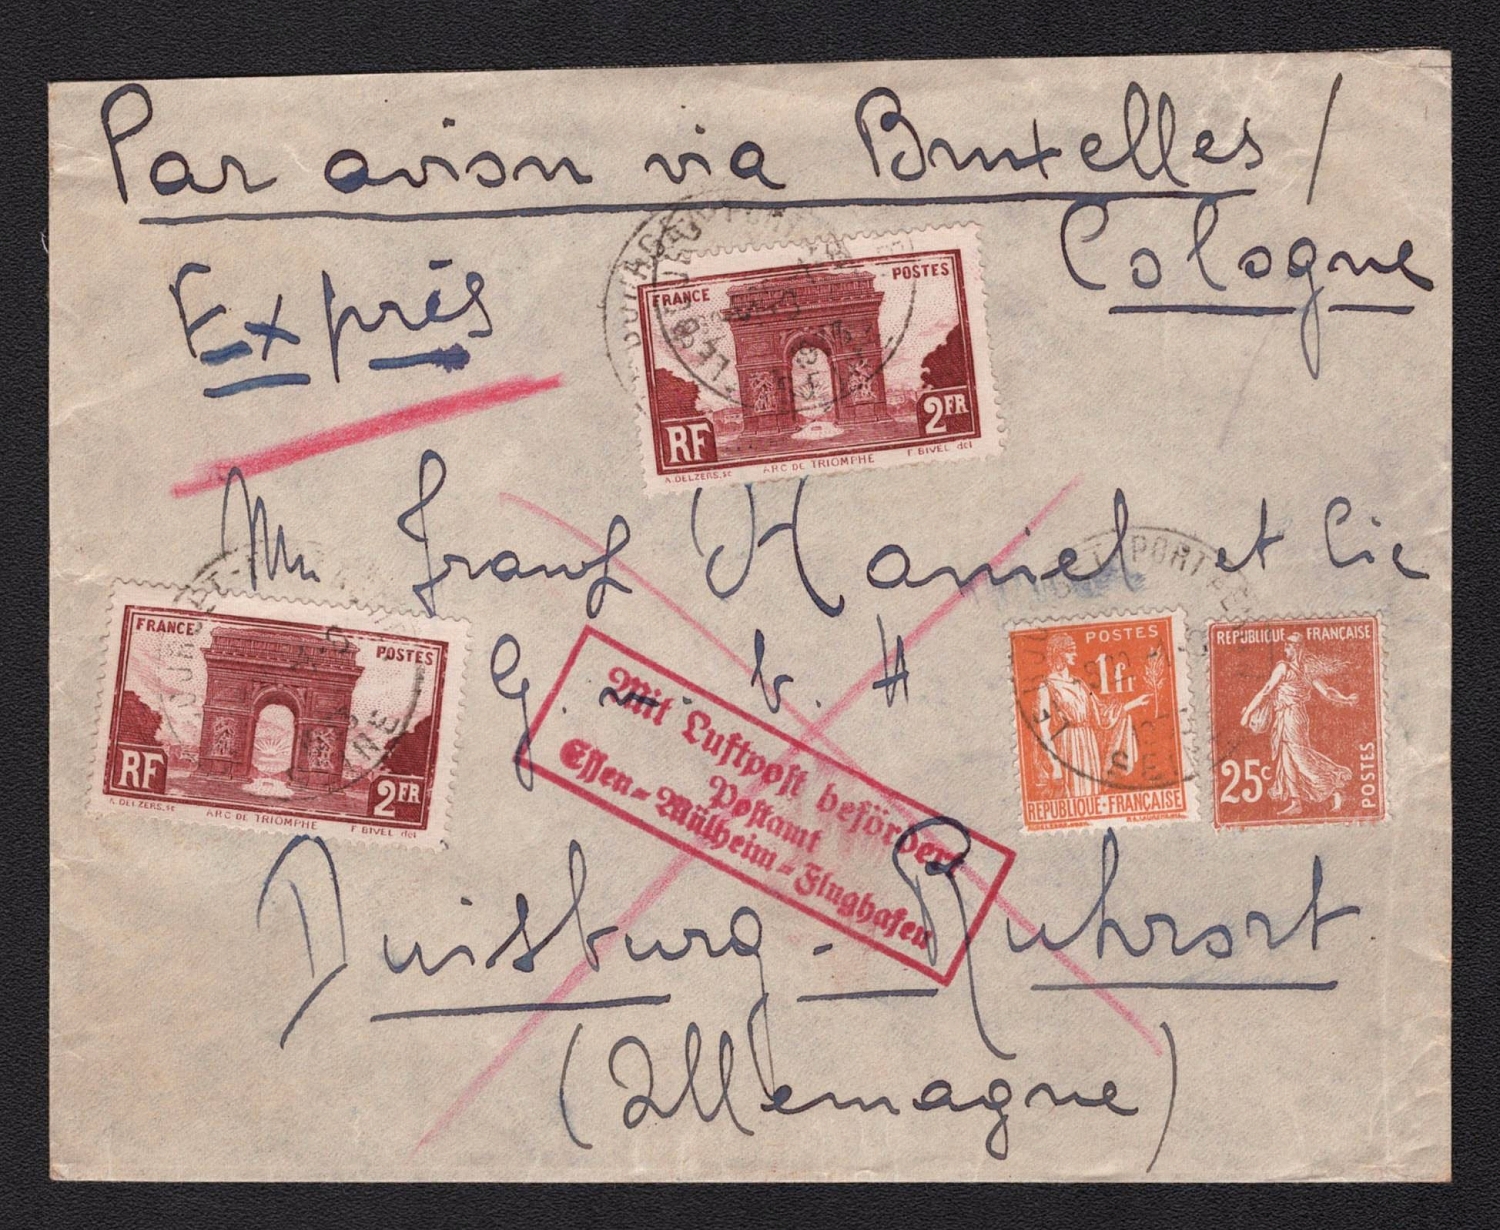 Par avion via Bruxelles /
Cologne
Exprès
FRANCE POSTES
RF 2FR
A.DELZERS.sc ARC DE TRIOMPHE F BIVEL del
Mr Franz Haniel et Cie
G. m. b. H
FRANCE POSTES
RF 2FR
A.DELZERS.sc ARC DE TRIOMPHE F BIVEL del
POSTES
1fr
REPUBLIQUE-FRANÇAISE
REPUBLIQUE FRANÇAISE
25c POSTES
Mit Luftpost befördert
Postamt
Essen-Mülheim-Flughafen
Duisburg-Ruhrort
(Allemagne)